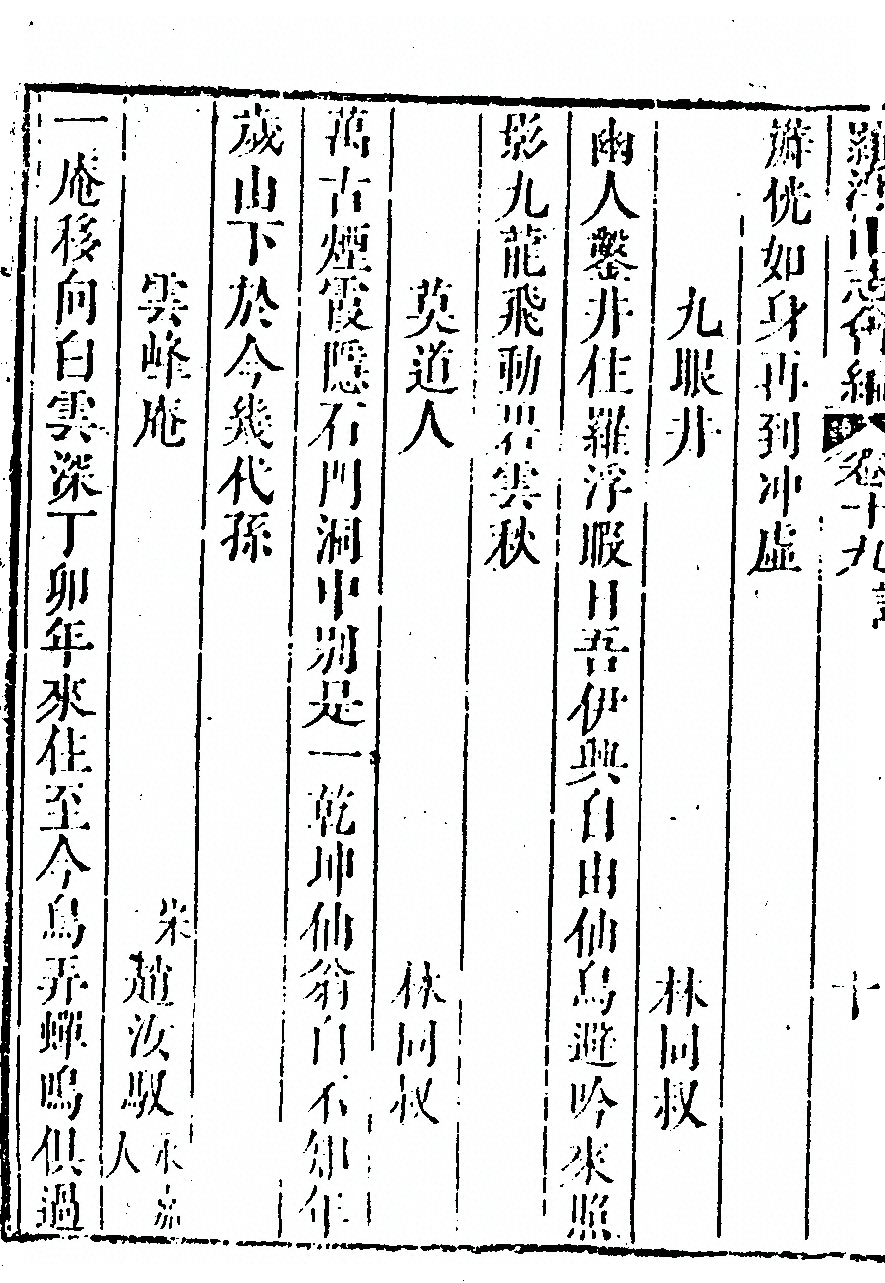 羅浮山志會編 卷十九 詩 十
辦恍如身再到冲虛
九眼井 林同叔
幽人鑿井住羅浮暇日吾伊興自由仙鳥避吟來照
影九龍飛動碧雲秋
莫道人 林同叔
萬古煙霞隱石門洞中別是一乾坤仙翁自不知年
歲山下於今幾代孫
雲峰庵 宋趙汝馭 人
一庵移向白雲深丁卯年來住至今鳥弄蟬鳴俱過